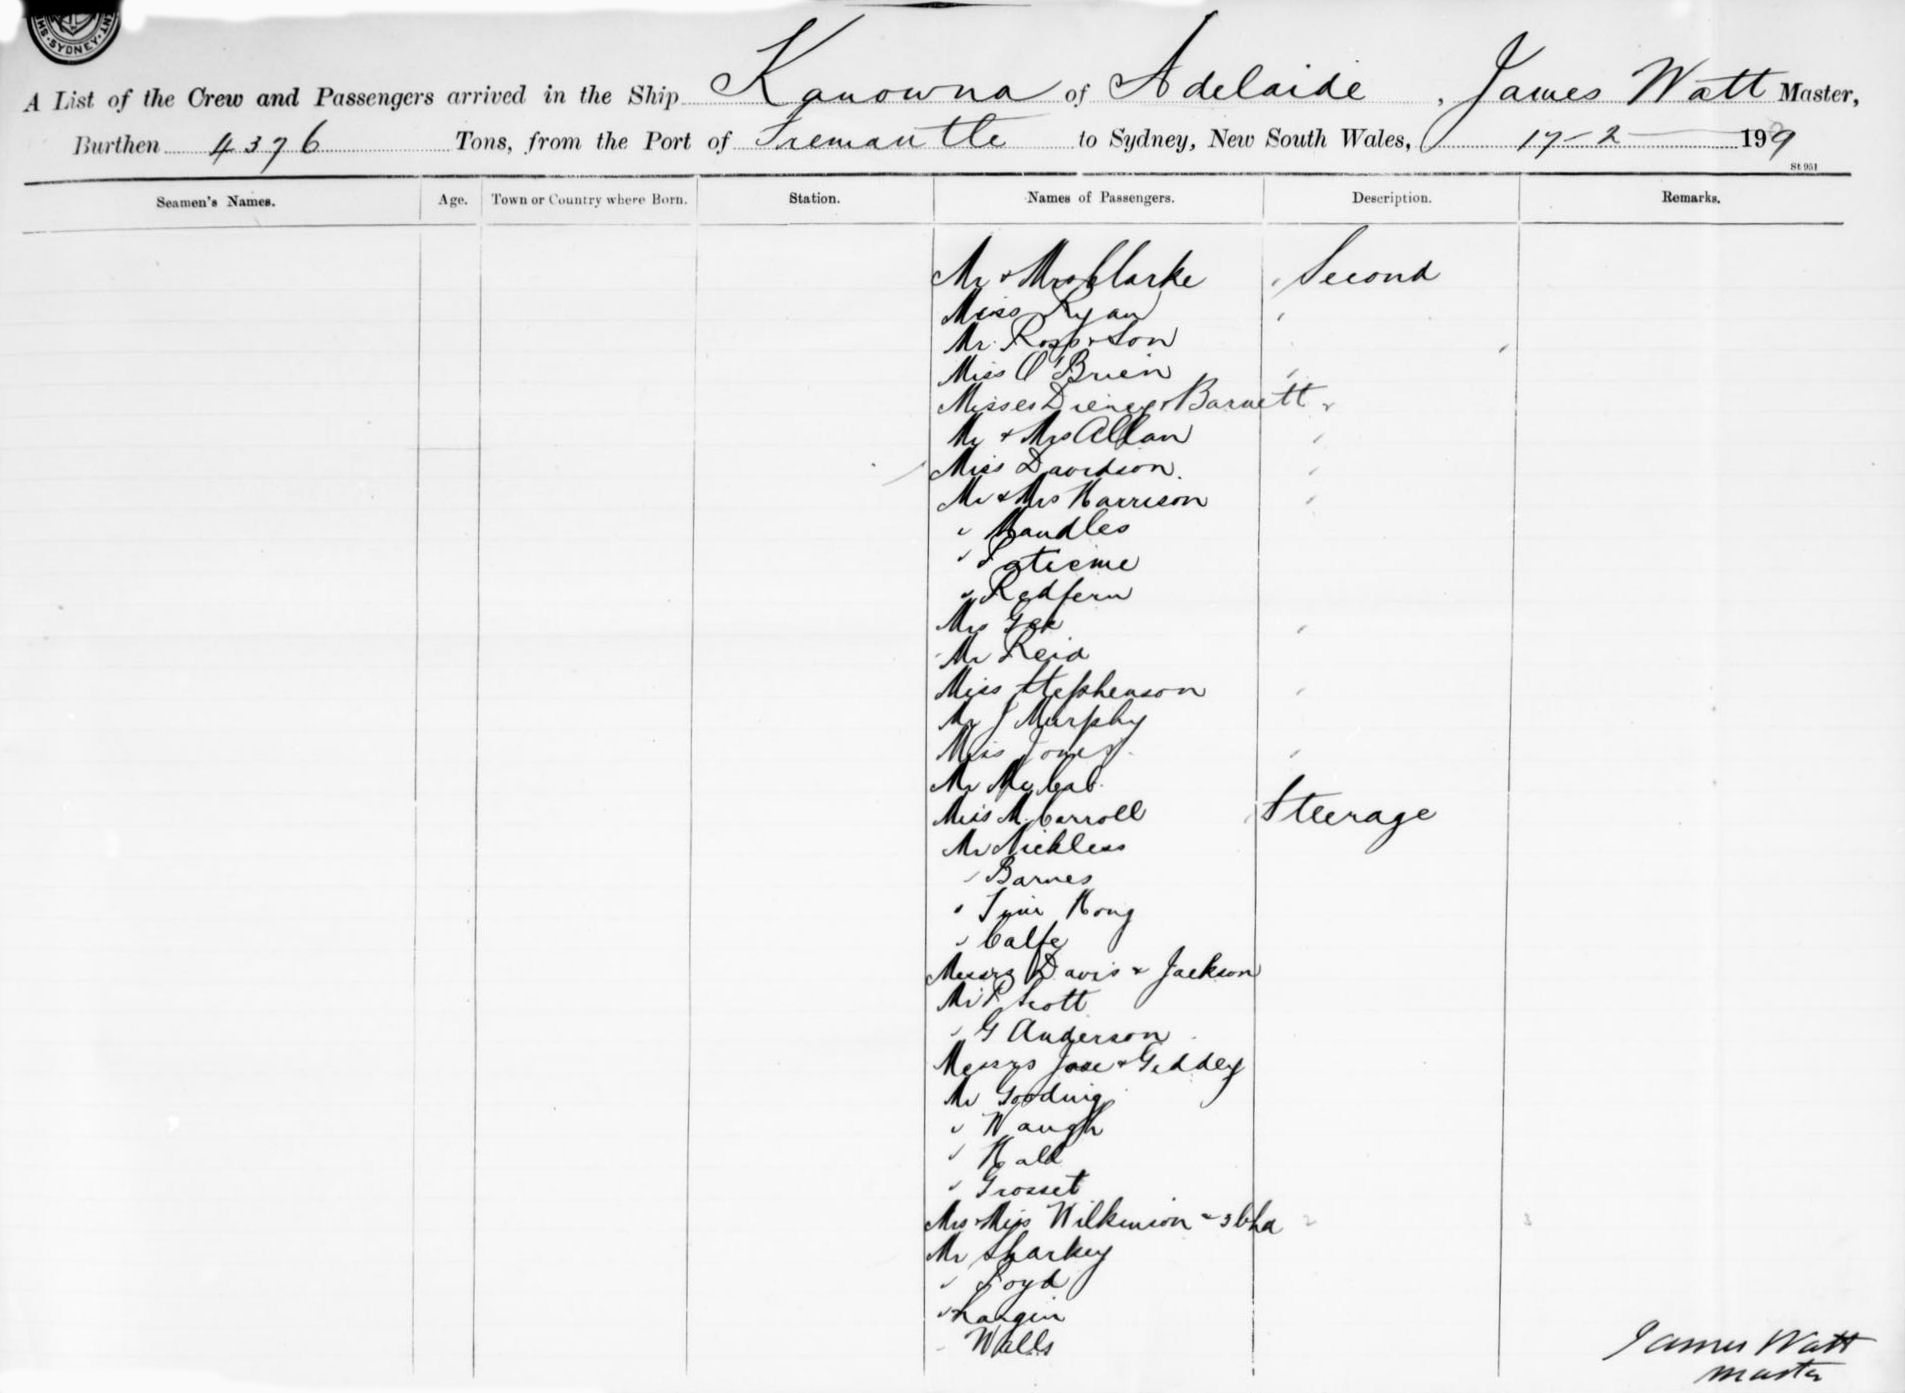 SYDNEY
A List of the Crew and Passengers arrived in the Ship Kanowna of Adelaide, James Watt Master,
Burthen 4376 Tons, from the Port of Fremantle to Sydney, New South Wales, 17-2 1909
St 951
Seamen's Names. Age. Town or Country where Born. Station. Names of Passengers. Description. Remarks.
Mr & Mrs Clarke Second
Miss Ryan
Mr Ross & Son
Miss O'Brien
Misses & Barnett
Mr & Mrs Allan
Miss Davidson
Mr & Mrs Harrison
" Handles
"
" Redfern
Mrs
Mr Reid
Miss Stephenson
Mr J Murphy
Miss Jones
Mr McCab
Miss M Carroll Steerage
Mr Nickless
" Barnes
" Hong
" Calfe
Messrs Davis & Jackson
Mr P Scott
" G Anderson
Messrs Jose & Geddey
Mr Gooding
" Waugh
" Hald
" Grosset
Mrs & Miss Wilkinson & 3 Chd
Mr Sharkey
" Loyd
" Langin
" Walls
James Watt
Master